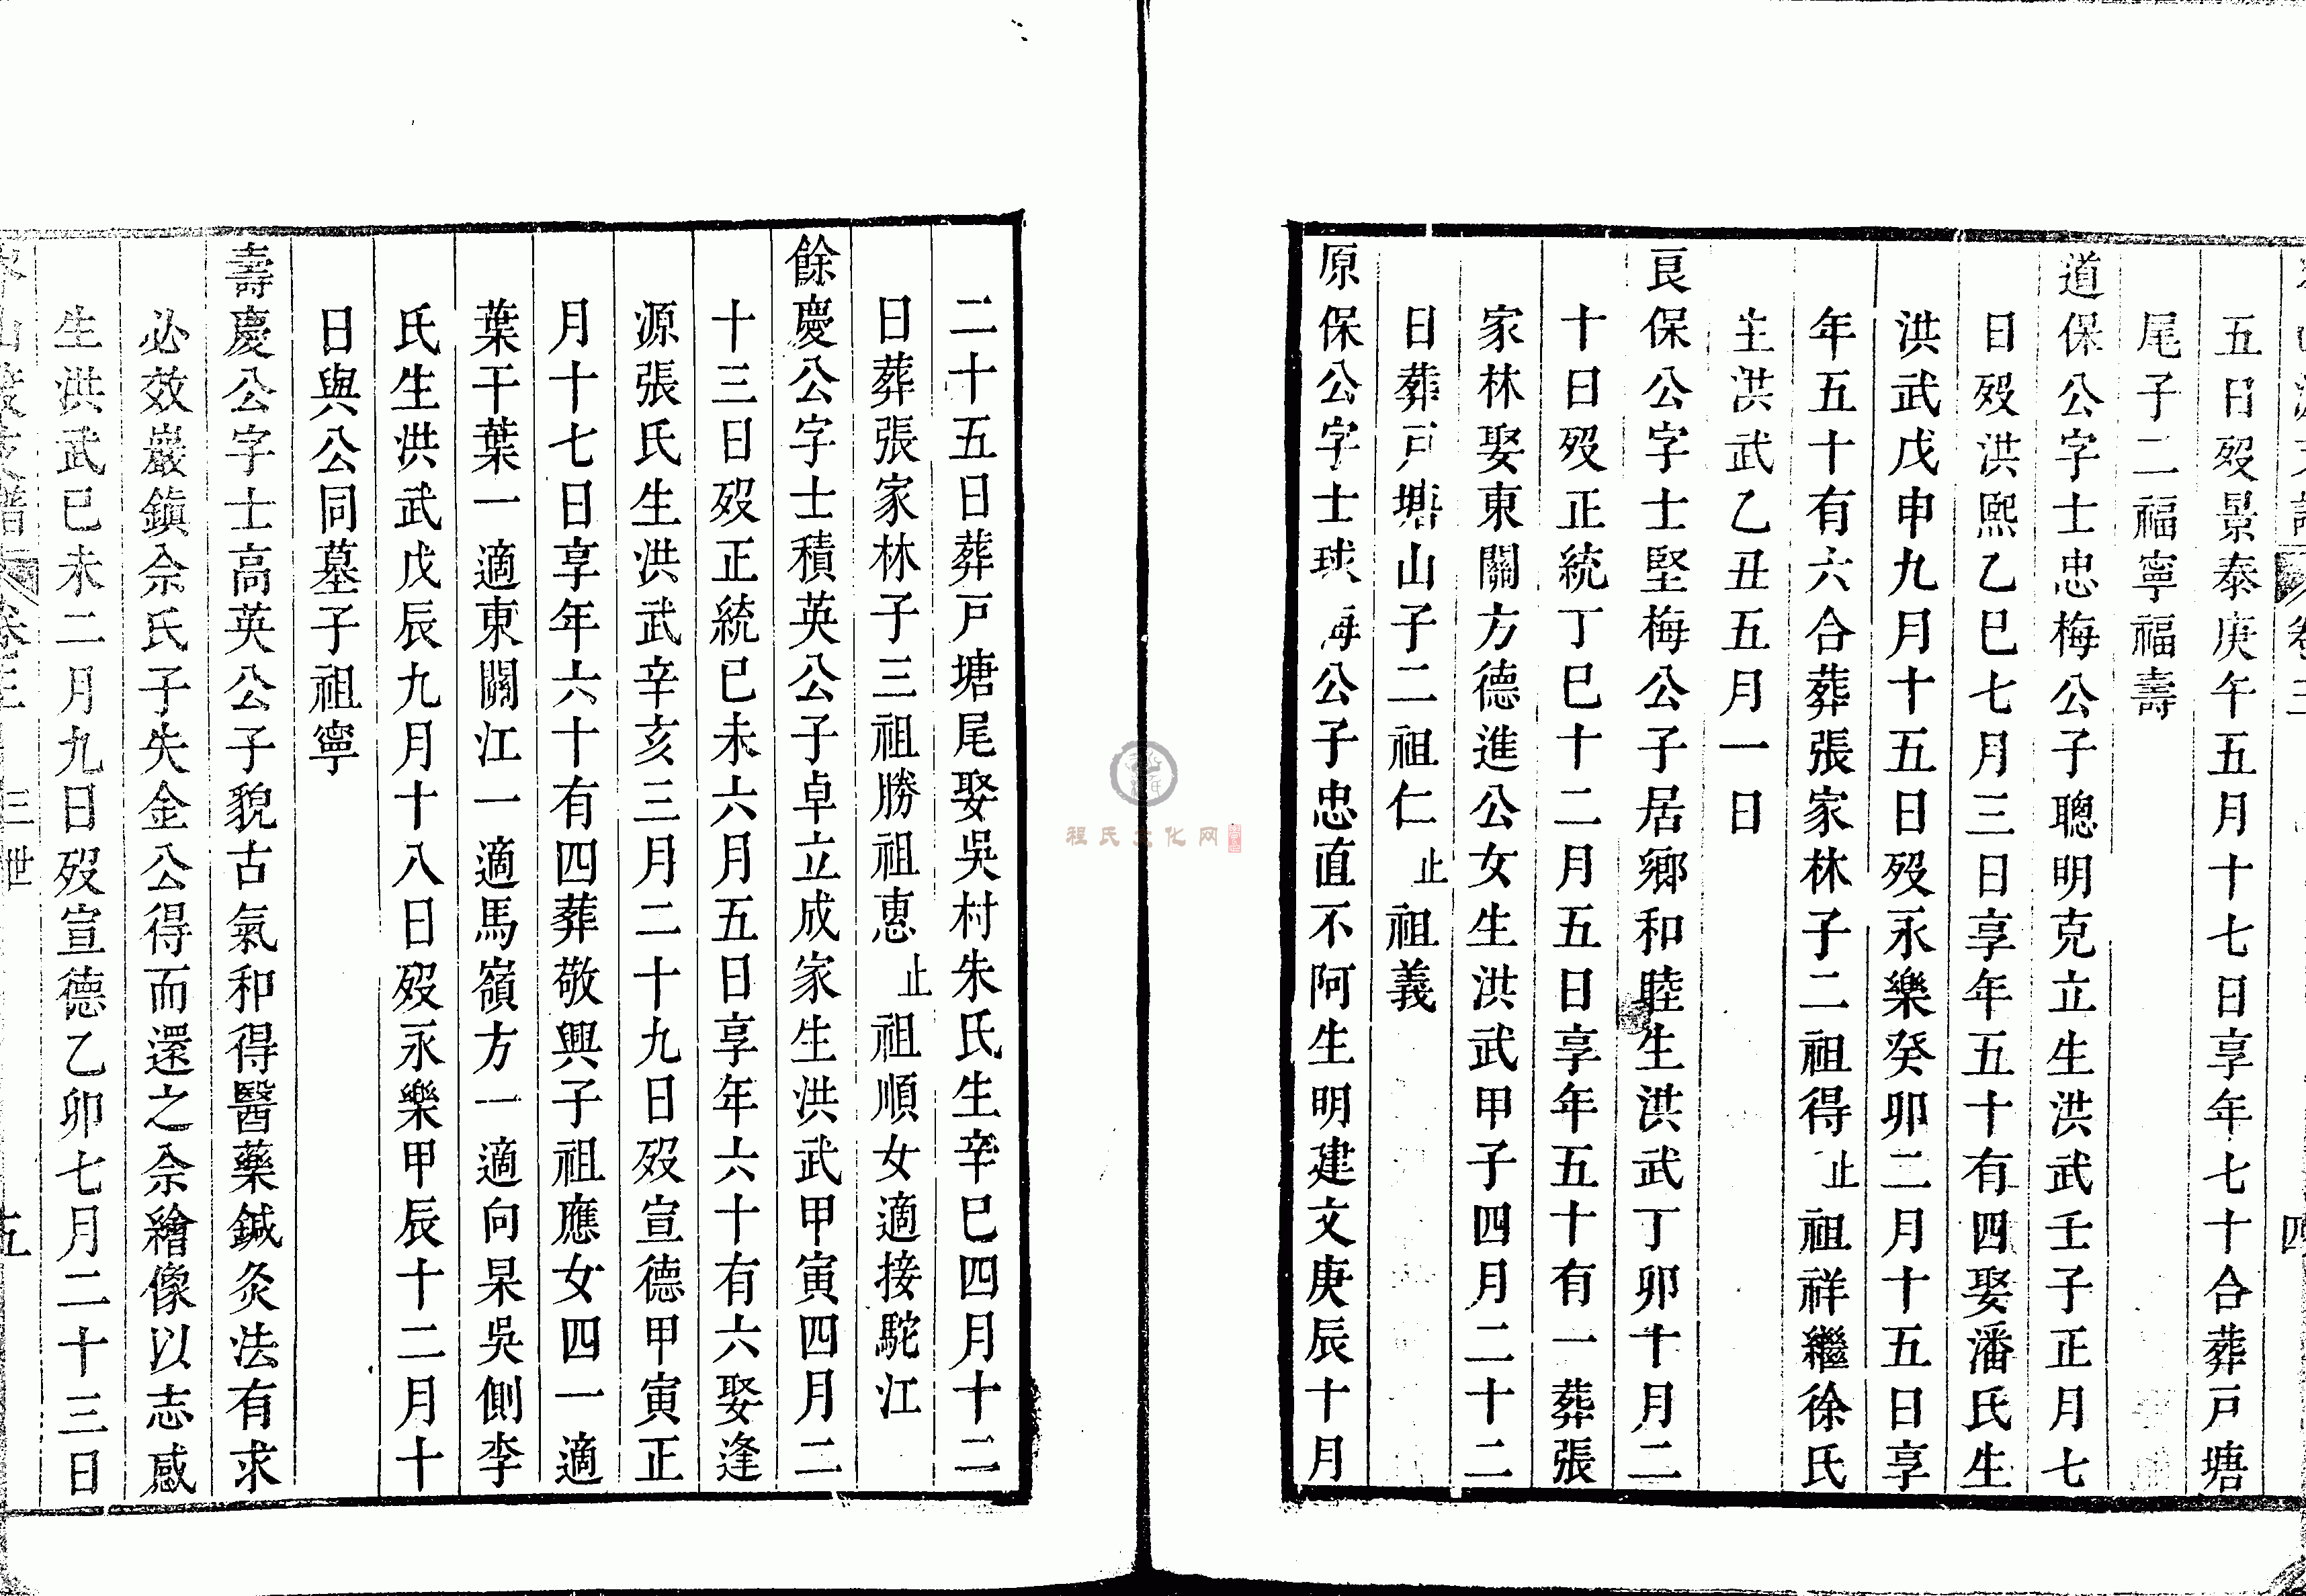 卷三
四
五日歿景泰庚午五月十七日享年七十合葬戸塘
尾子二福寧福壽
道保公字士忠梅公子聰明克立生洪武壬子正月七
日歿洪熙乙巳七月三日享年五十有四娶潘氏生
洪武戊申九月十五日歿永樂癸卯二月十五日享
年五十有六合葬張家林子二祖得止祖祥繼徐氏
生洪武乙丑五月一日
良保公字士堅梅公子居鄉和睦生洪武丁卯十月二
十日歿正統丁巳十二月五日享年五十有一葬張
家林娶東關方德進公女生洪武甲子四月二十二
日葬戸塘山子二祖仁止祖義
原保公字士球海公子忠直不阿生明建文庚辰十月
二十五日葬戸塘尾娶吳村朱氏生辛巳四月十二
日葬張家林子三祖勝祖惠止祖順女適接駝江
餘慶公字士積英公子卓立成家生洪武甲寅四月二
十三日歿正統己未六月五日享年六十有六娶逢
源張氏生洪武辛亥三月二十九日歿宣德甲寅正
月十七日享年六十有四葬敬興子祖應女四一適
葉干葉一適東關江一適馬嶺方一適向杲吳側李
氏生洪武戊辰九月十八日歿永樂甲辰十二月十
日與公同墓子祖寧
壽慶公字士高英公子貌古氣和得醫藥鍼灸法有求
必效巖鎮佘氏子失金公得而還之佘繪像以志感
生洪武己未二月九日歿宣德乙卯七月二十三日
卷三
三世
五
程氏文化网